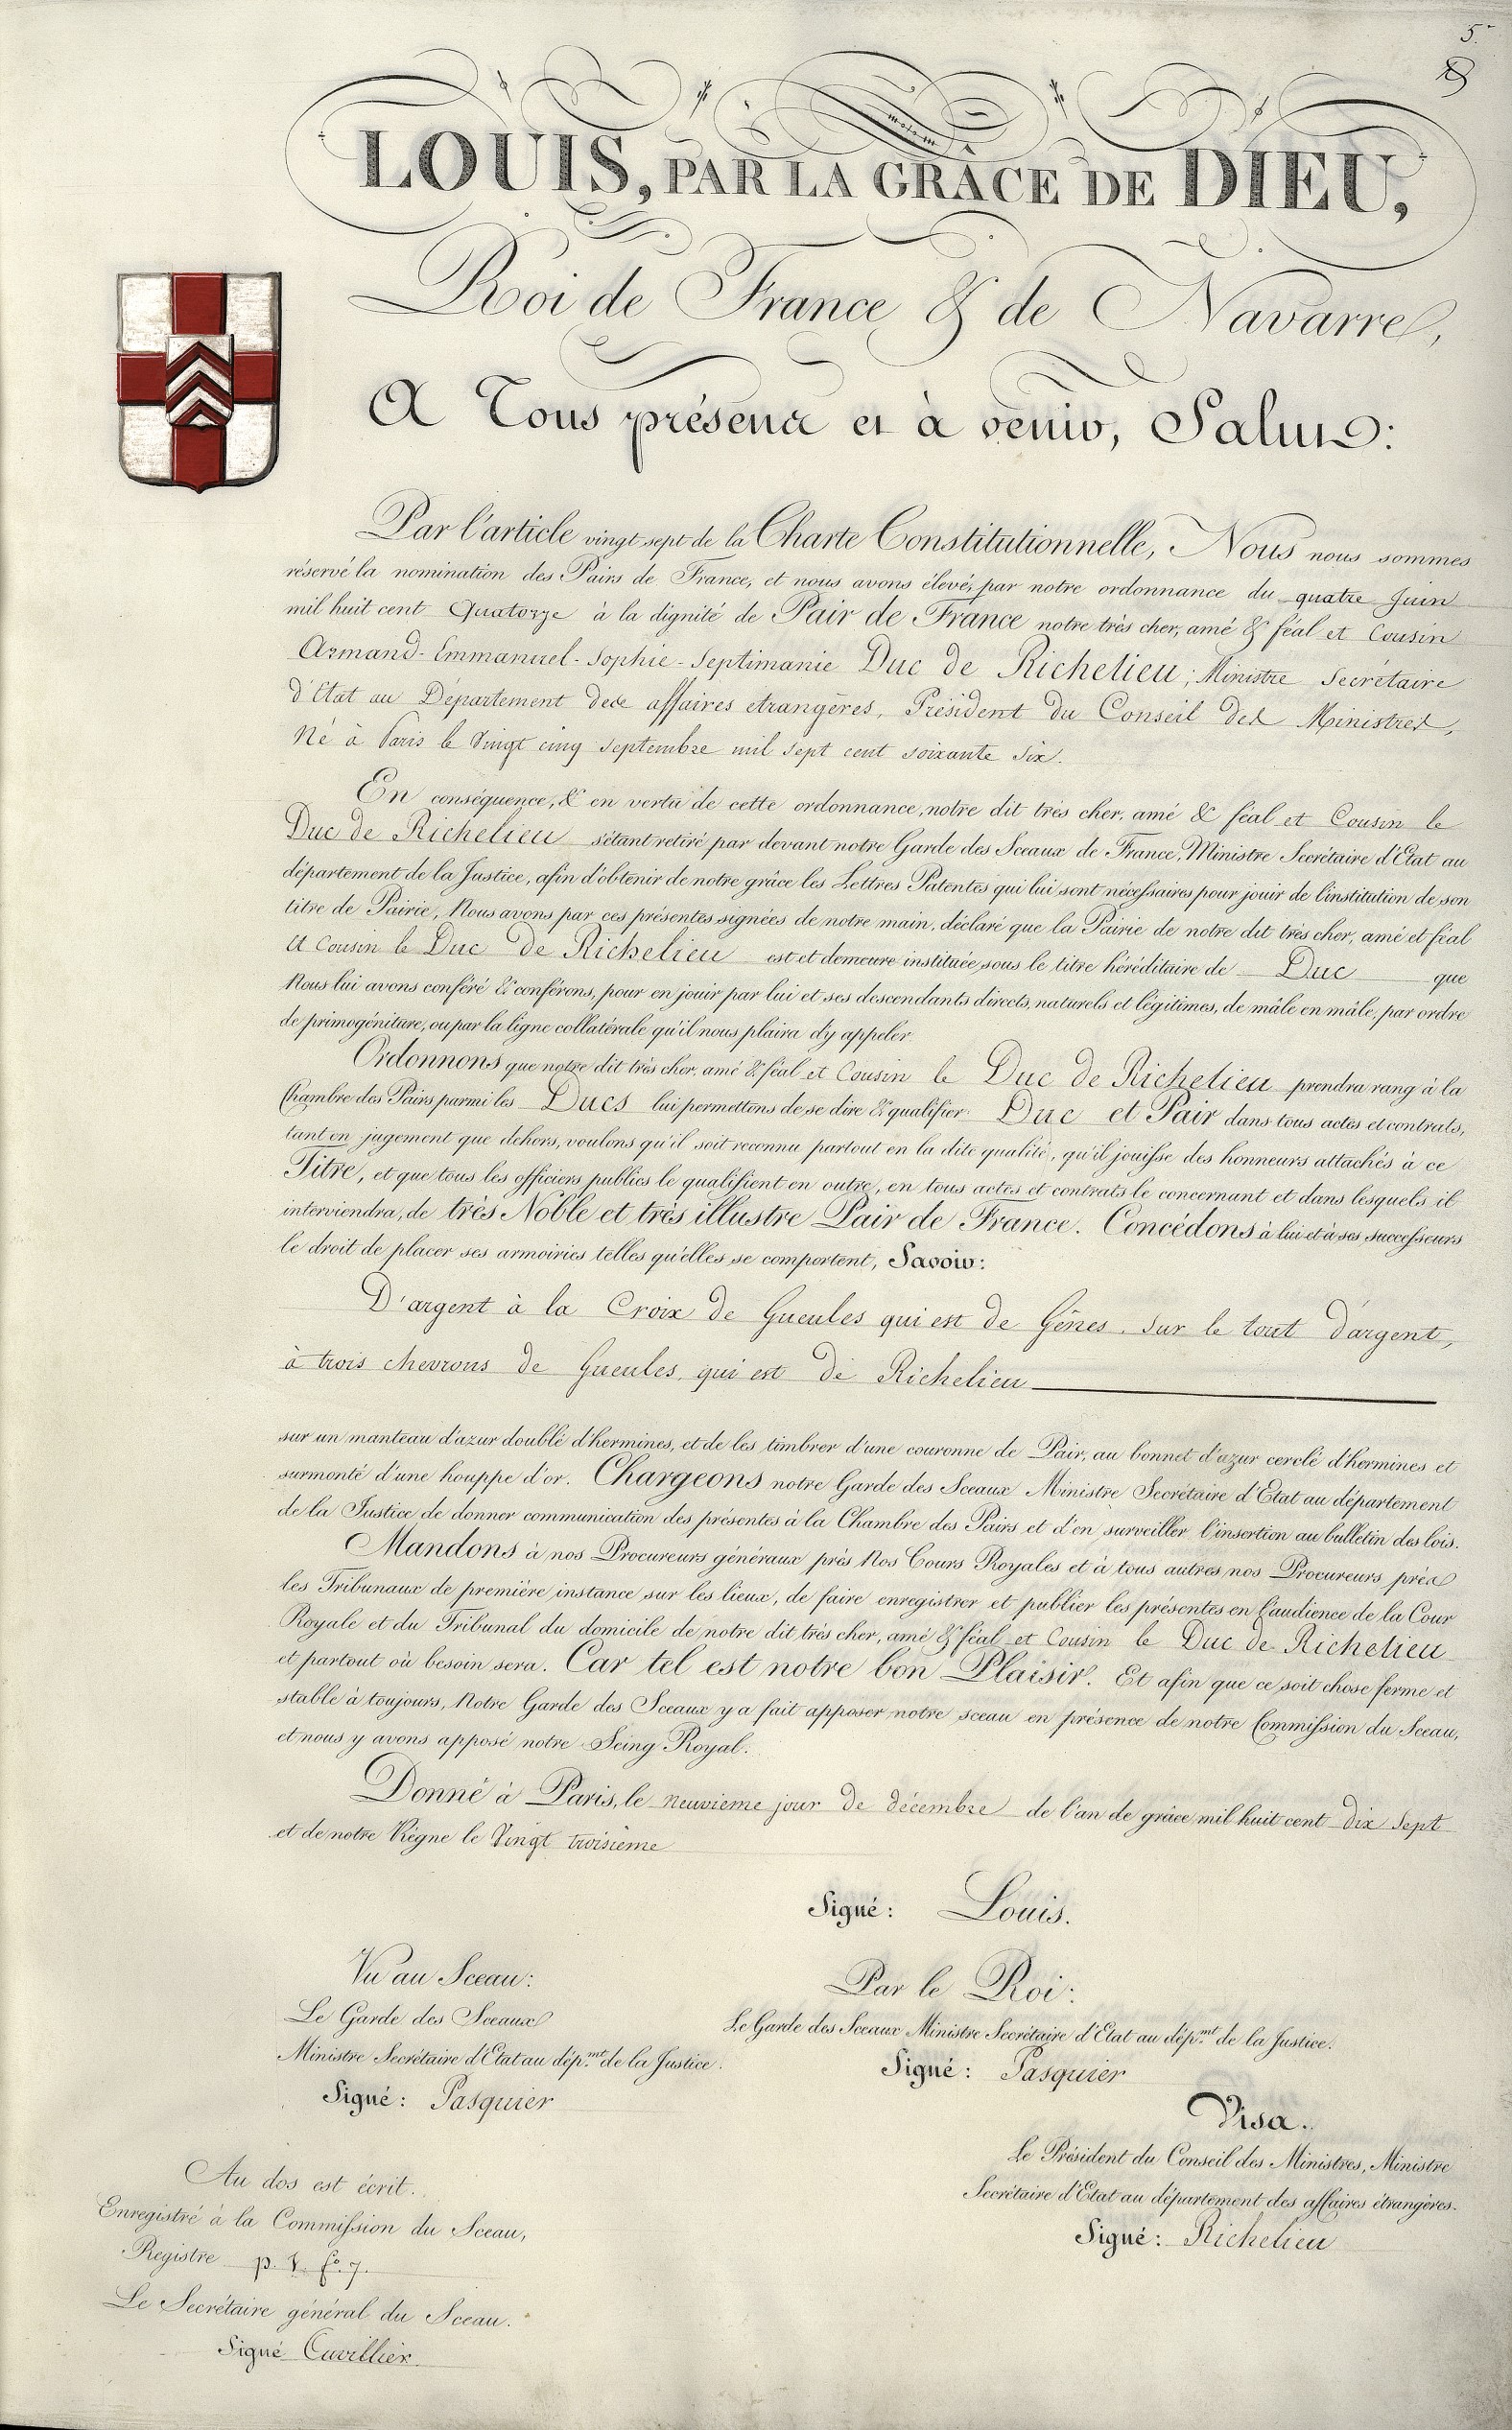 5.
LOUIS, PAR LA GRÂCE DE DIEU,
Roi de France & de Navarre,
A Tous présens et à venir, Salut:
Par l'article vingt sept de la Charte Constitutionnelle, Nous nous sommes
réservé la nomination des Pairs de France, et nous avons élevé, par notre ordonnance du quatre Juin
mil huit cent Quatorze à la dignité de Pair de France notre très cher, amé & féal et Cousin
Armand-Emmanuel-Sophie-Septimanie Duc de Richelieu; Ministre Secrétaire
d'Etat au Département des affaires etrangères, Président du Conseil des Ministres,
Né à Paris le Vingt cinq Septembre mil sept cent soixante six.
En conséquence, & en vertu de cette ordonnance, notre dit très cher, amé & féal et Cousin le
Duc de Richelieu s'étant retiré par devant notre Garde des Sceaux de France, Ministre Secrétaire d'Etat au
département de la Justice, afin d'obtenir de notre grâce les Lettres Patentes qui lui sont nécessaires pour jouir de l'institution de son
titre de Pairie, Nous avons par ces présentes signées de notre main, déclaré que la Pairie de notre dit très cher, amé et féal
et Cousin le Duc de Richelieu est et demeure instituée sous le titre héréditaire de Duc que
Nous lui avons conféré & conférons, pour en jouir par lui et ses descendants directs, naturels et légitimes, de mâle en mâle, par ordre
de primogéniture, ou par la ligne collatérale qu'il nous plaira d'y appeler.
Ordonnons que notre dit très cher, amé & féal et Cousin le Duc de Richelieu prendra rang à la
Chambre des Pairs parmi les Ducs lui permettons de se dire & qualifier Duc et Pair dans tous actes et contrats,
tant en jugement que dehors, voulons qu'il soit reconnu partout en la dite qualité, qu'il jouisse des honneurs attachés à ce
Titre, et que tous les officiers publics le qualifient en outre, en tous actes et contrats le concernant et dans lesquels il
interviendra, de très Noble et très illustre Pair de France. Concédons à lui et à ses successeurs
le droit de placer ses armoiries telles qu'elles se comportent, Savoir:
D'argent à la Croix de Gueules qui est de Gênes, sur le tout d'argent,
à trois chevrons de Gueules, qui est de Richelieu
sur un manteau d'azur doublé d'hermines, et de les timbrer d'une couronne de Pair, au bonnet d'azur cerclé d'hermines et
surmonté d'une houppe d'or. Chargeons notre Garde des Sceaux Ministre Secrétaire d'Etat au département
de la Justice de donner communication des présentes à la Chambre des Pairs et d'en surveiller l'insertion au bulletin des lois.
Mandons à nos Procureurs généraux près Nos Cours Royales et à tous autres nos Procureurs près
les Tribunaux de première instance sur les lieux, de faire enregistrer et publier les présentes en l'audience de la Cour
Royale et du Tribunal du domicile de notre dit très cher, amé & féal et Cousin le Duc de Richelieu
et partout où besoin sera. Car tel est notre bon Plaisir. Et afin que ce soit chose ferme et
stable à toujours, Notre Garde des Sceaux y a fait apposer notre sceau en présence de notre Commission du Sceau,
et nous y avons apposé notre Seing Royal.
Donné à Paris, le neuvieme jour de décembre de l'an de grâce mil huit cent dix sept
et de notre Règne le Vingt troisieme
Signé: Louis.
Vu au Sceau:
Le Garde des Sceaux
Ministre Secrétaire d'Etat au dép.mt de la Justice.
Signé: Pasquier
Par le Roi:
Le Garde des Sceaux Ministre Secrétaire d'Etat au dép.mt de la Justice.
Signé: Pasquier
Visa.
Le Président du Conseil des Ministres, Ministre
Secrétaire d'Etat au département des affaires étrangères.
Signé: Richelieu
Au dos est écrit.
Enregistré à la Commission du Sceau,
Registre p. fo. 7.
Le Secrétaire général du Sceau.
Signé Cuvillier